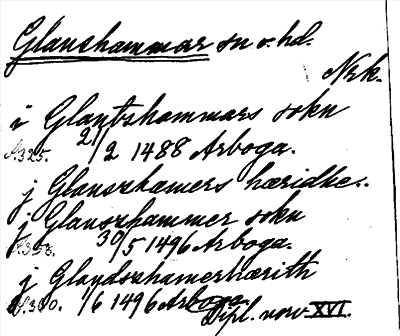 Glanshammar sn o. hd.
Nrk.
i Glantzhammars sokn
s. 325. 21/2 1488 Arboga.
j Glanszhamers hæridhe..
j Glanszhammer sokn
s. 358. 30/5 1496 Arboga.
j Glandzhamerhærith
s. 360. 1/6 1496 Arboga.
Dipl. norv. XVI.